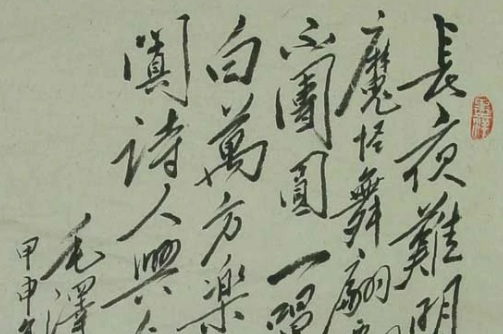 長夜難明
魔怪舞翩
不團圓一唱
白萬方樂
闐詩人興
毛澤
甲申